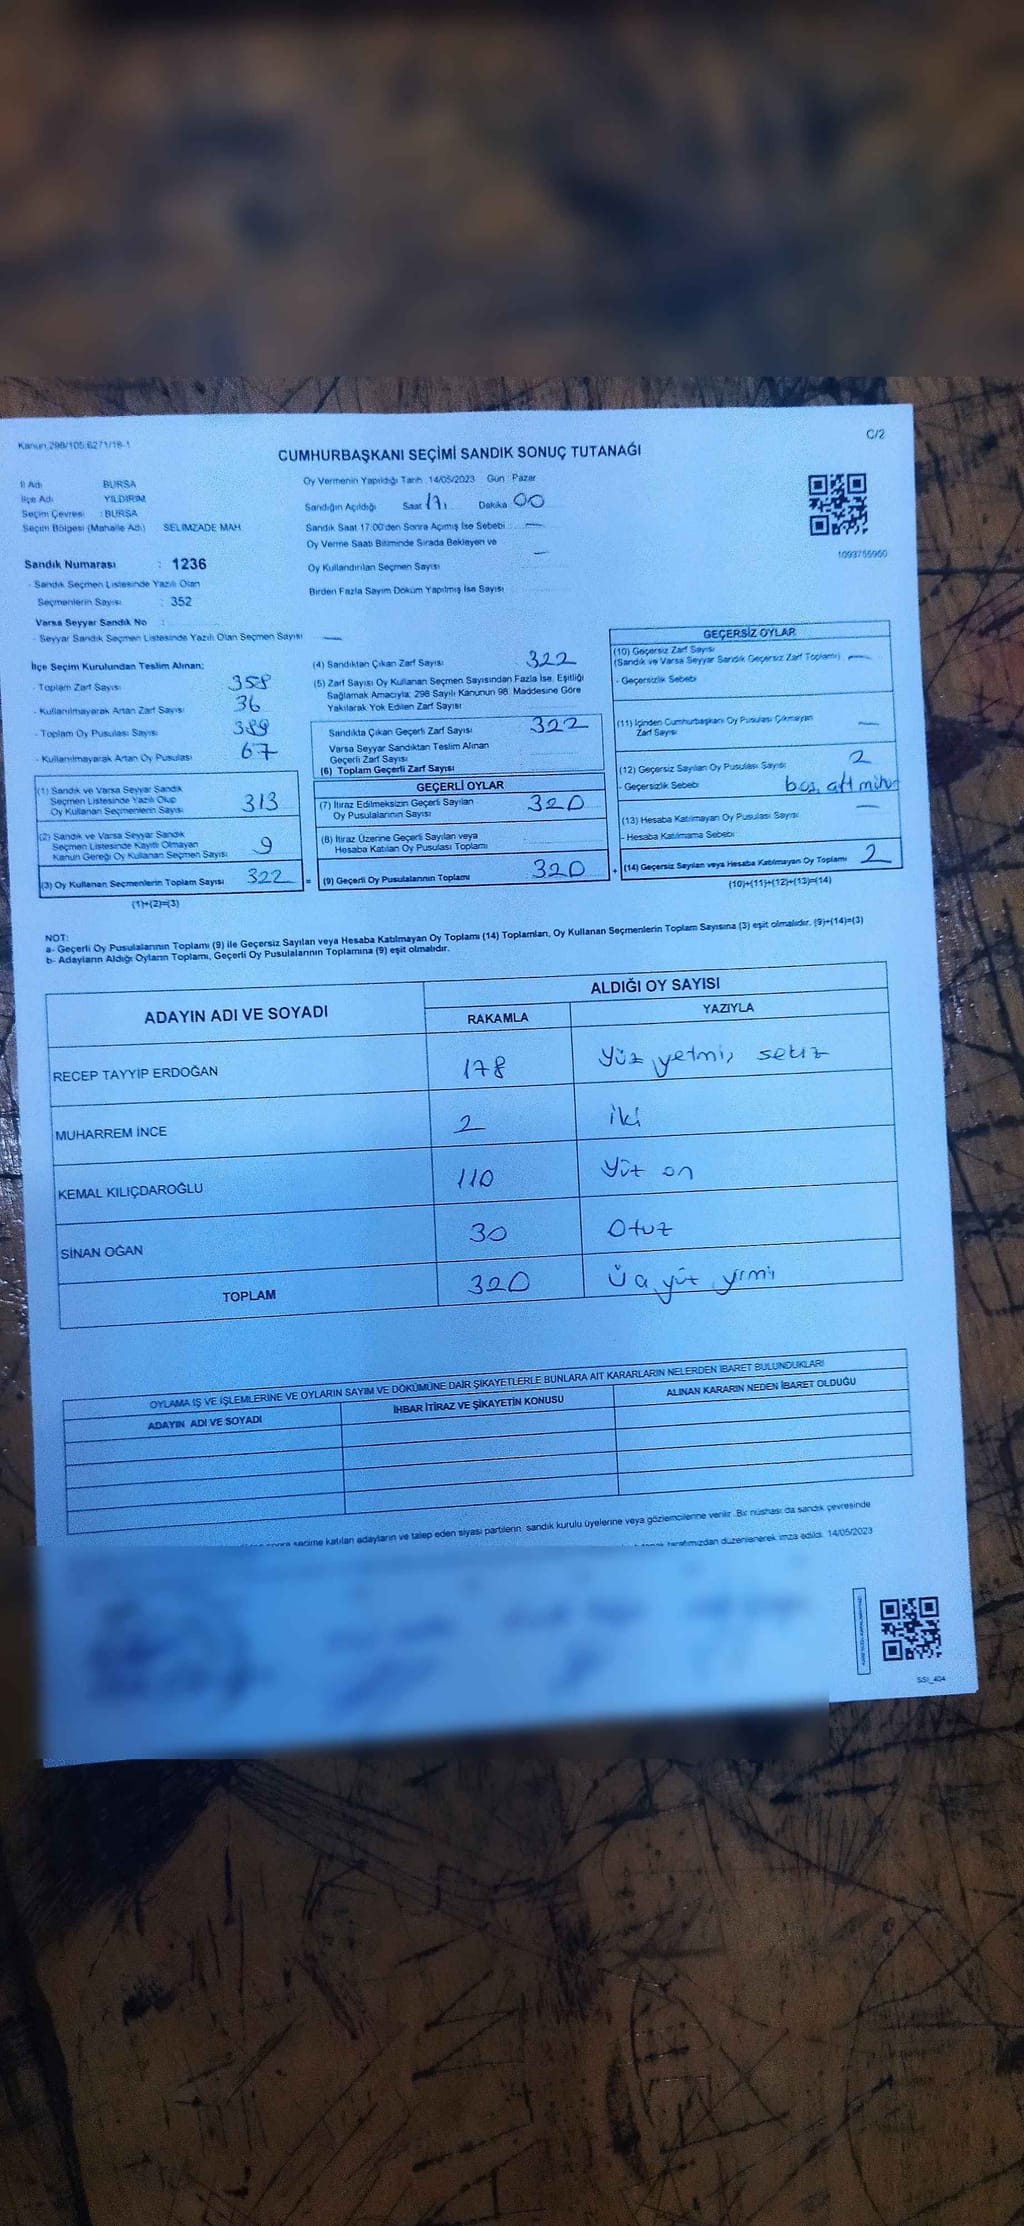 Kanun:298/105,6271/18-1
C/2
CUMHURBAŞKANI SEÇİMİ SANDIK SONUÇ TUTANAĞI
İl Adı BURSA
İlçe Adı YILDIRIM
Seçim Çevresi : BURSA
Seçim Bölgesi (Mahalle Adı) SELİMZADE MAH
Oy Vermenin Yapıldığı Tarih 14/05/2023 Gün : Pazar
Sandığın Açıldığı Saat 17 Dakika 00
Sandık Saat 17:00'den Sonra Açılmış İse Sebebi : —
Oy Verme Saati Bitiminde Sırada Bekleyen ve
Oy Kullandırılan Seçmen Sayısı —
Birden Fazla Sayım Döküm Yapılmış İse Sayısı
1093755950
Sandık Numarası : 1236
- Sandık Seçmen Listesinde Yazılı Olan
Seçmenlerin Sayısı : 352
Varsa Seyyar Sandık No :
- Seyyar Sandık Seçmen Listesinde Yazılı Olan Seçmen Sayısı —
İlçe Seçim Kurulundan Teslim Alınan:
- Toplam Zarf Sayısı 358
- Kullanılmayarak Artan Zarf Sayısı 36
- Toplam Oy Pusulası Sayısı 389
- Kullanılmayarak Artan Oy Pusulası 67
(1) Sandık ve Varsa Seyyar Sandık
Seçmen Listesinde Yazılı Olup
Oy Kullanan Seçmenlerin Sayısı 313
(2) Sandık ve Varsa Seyyar Sandık
Seçmen Listesinde Kayıtlı Olmayan
Kanun Gereği Oy Kullanan Seçmen Sayısı 9
(3) Oy Kullanan Seçmenlerin Toplam Sayısı 322 =
(1)+(2)=(3)
(4) Sandıktan Çıkan Zarf Sayısı 322
(5) Zarf Sayısı Oy Kullanan Seçmen Sayısından Fazla İse, Eşitliği
Sağlamak Amacıyla, 298 Sayılı Kanunun 98. Maddesine Göre
Yakılarak Yok Edilen Zarf Sayısı
Sandıkta Çıkan Geçerli Zarf Sayısı 322
Varsa Seyyar Sandıktan Teslim Alınan
Geçerli Zarf Sayısı
(6) Toplam Geçerli Zarf Sayısı
GEÇERLİ OYLAR
(7) İtiraz Edilmeksizin Geçerli Sayılan
Oy Pusulalarının Sayısı 320
(8) İtiraz Üzerine Geçerli Sayılan veya
Hesaba Katılan Oy Pusulası Toplamı
(9) Geçerli Oy Pusulalarının Toplamı 320 +
GEÇERSİZ OYLAR
(10) Geçersiz Zarf Sayısı
(Sandık ve Varsa Seyyar Sandık Geçersiz Zarf Toplamı) —
- Geçersizlik Sebebi
(11) İçinden Cumhurbaşkanı Oy Pusulası Çıkmayan
Zarf Sayısı —
(12) Geçersiz Sayılan Oy Pusulası Sayısı 2
- Geçersizlik Sebebi boş, çift mühür
(13) Hesaba Katılmayan Oy Pusulası Sayısı —
- Hesaba Katılmama Sebebi
(14) Geçersiz Sayılan veya Hesaba Katılmayan Oy Toplamı 2
(10)+(11)+(12)+(13)=(14)
NOT:
a- Geçerli Oy Pusulalarının Toplamı (9) ile Geçersiz Sayılan veya Hesaba Katılmayan Oy Toplamı (14) Toplamları, Oy Kullanan Seçmenlerin Toplam Sayısına (3) eşit olmalıdır. (9)+(14)=(3)
b- Adayların Aldığı Oyların Toplamı, Geçerli Oy Pusulalarının Toplamına (9) eşit olmalıdır.
ADAYIN ADI VE SOYADI
ALDIĞI OY SAYISI
RAKAMLA YAZIYLA
RECEP TAYYİP ERDOĞAN 178 yüz yetmiş sekiz
MUHARREM İNCE 2 iki
KEMAL KILIÇDAROĞLU 110 yüz on
SİNAN OĞAN 30 Otuz
TOPLAM 320 Üç yüz yirmi
OYLAMA İŞ VE İŞLEMLERİNE VE OYLARIN SAYIM VE DÖKÜMÜNE DAİR ŞİKAYETLERLE BUNLARA AİT KARARLARIN NELERDEN İBARET BULUNDUKLARI
ADAYIN ADI VE SOYADI İHBAR İTİRAZ VE ŞİKAYETİN KONUSU ALINAN KARARIN NEDEN İBARET OLDUĞU
sonra seçime katılan adayların ve talep eden siyasi partilerin sandık kurulu üyelerine veya gözlemcilerine verilir. Bir nüshası da sandık çevresinde
tarafımızdan düzenlenerek imza edildi. 14/05/2023
SSI_404